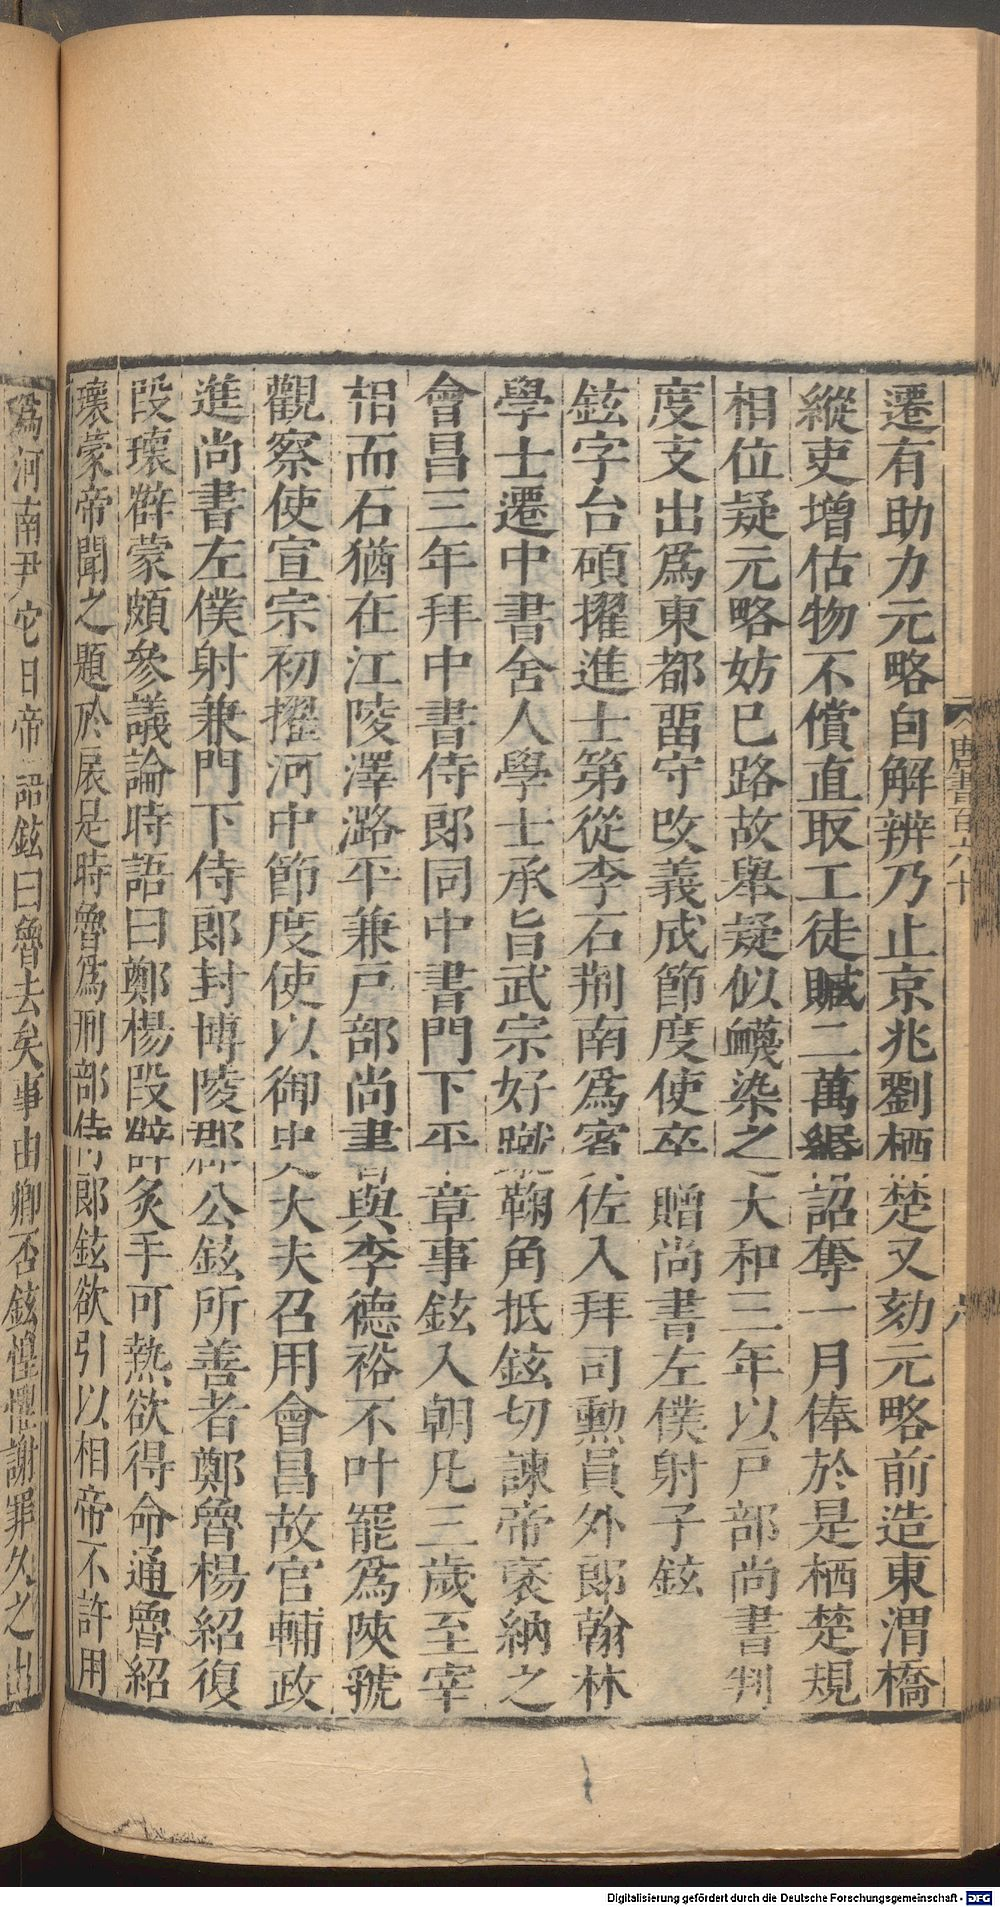 唐書百六十
遷有助力元略自解辨乃止京兆劉栖楚又劾元略前造東渭橋
縱吏增估物不償直取工徒贓二萬緡詔奪一月俸於是栖楚規
相位疑元略妨已路故舉疑似衊染之大和三年以戸部尚書判
度支出爲東都畱守改義成節度使卒贈尚書左僕射子鉉
鉉字台碩擢進士第從李石荆南爲賓佐入拜司勳員外郎翰林
學士遷中書舍人學士承旨武宗好蹴鞠角抵鉉切諫帝褒納之
會昌三年拜中書侍郎同中書門下平章事鉉入朝凡三歲至宰
相而石猶在江陵澤潞平兼戸部尚書與李德裕不叶罷爲陝虢
觀察使宣宗初擢河中節度使以御史大夫召用會昌故官輔政
進尚書左僕射兼門下侍郎封博陵郡公鉉所善者鄭魯楊紹復
段瓌薛蒙頗參議論時語曰鄭楊段薛炙手可熱欲得命通魯紹
瓌蒙帝聞之題於扆是時魯爲刑部侍郎鉉欲引以相帝不許用
爲河南尹它日帝語鉉曰魯去矣事由卿否鉉惶懼謝罪久之出
Digitalisierung gefördert durch die Deutsche Forschungsgemeinschaft - DFG